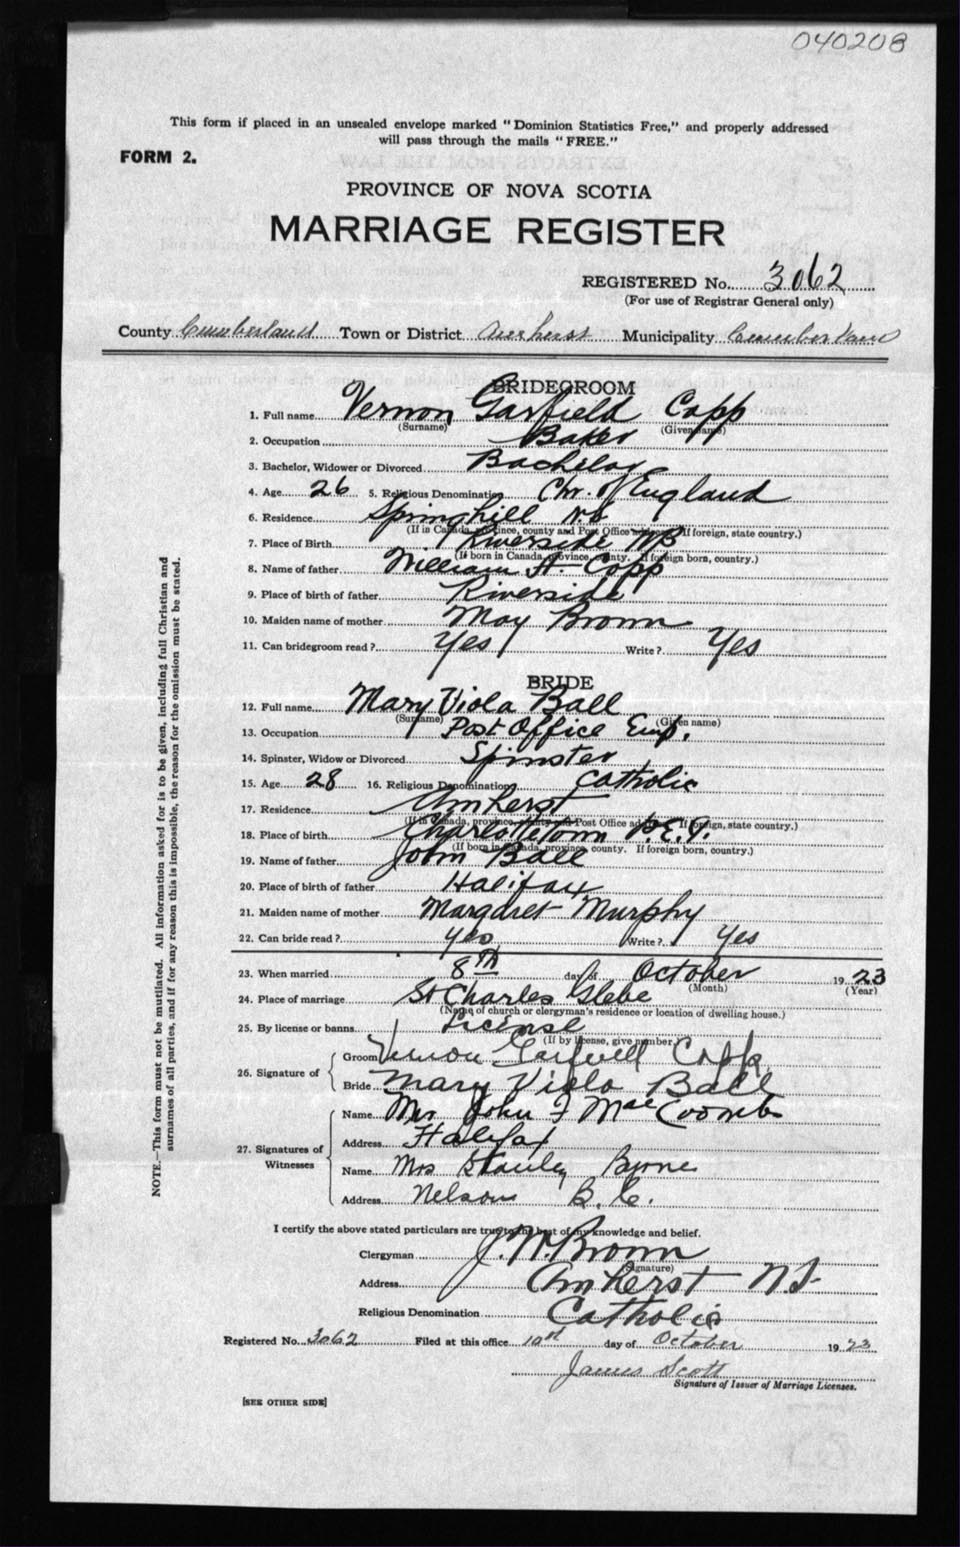 040208
This form if placed in an unsealed envelope marked "Dominion Statistics Free," and properly addressed
will pass through the mails "FREE."
FORM 2.
PROVINCE OF NOVA SCOTIA
MARRIAGE REGISTER
REGISTERED No. 3062
(For use of Registrar General only)
County Cumberland Town or District Amherst Municipality Cumberland
BRIDEGROOM
1. Full name Vernon Garfield Copp
(Surname) (Given name)
2. Occupation Baker
3. Bachelor, Widower or Divorced Bachelor
4. Age 26 5. Religious Denomination Chr. of England
6. Residence Springhill NS
(If in Canada, province, county and Post Office address. If foreign, state country.)
7. Place of Birth Riverside NB
(If born in Canada, province, county. If foreign born, country.)
8. Name of father William H. Copp
9. Place of birth of father Riverside
10. Maiden name of mother May Brown
11. Can bridegroom read? Yes Write? Yes
BRIDE
12. Full name Mary Viola Ball
(Surname) (Given name)
13. Occupation Post Office Emp.
14. Spinster, Widow or Divorced Spinster
15. Age 28 16. Religious Denomination Catholic
17. Residence Amherst
(If in Canada, province, county and Post Office address. If foreign, state country.)
18. Place of birth Charlottetown P.E.I.
(If born in Canada, province, county. If foreign born, country.)
19. Name of father John Ball
20. Place of birth of father Halifax
21. Maiden name of mother Margaret Murphy
22. Can bride read? yes Write? Yes
23. When married 8th day of October 1923
(Month) (Year)
24. Place of marriage St Charles Glebe
(Name of church or clergyman's residence or location of dwelling house.)
25. By license or banns License
(If by license, give number.)
26. Signature of
Groom Vernon Garfield Copp
Bride Mary Viola Ball
27. Signatures of Witnesses
Name Mrs John F MacCoombs
Address Halifax
Name Mrs Stanley Byrne
Address Nelson B.C.
I certify the above stated particulars are true to the best of my knowledge and belief.
Clergyman J. W. Brown
(Signature)
Address Amherst N.S.
Religious Denomination Catholic
Registered No. 3062 Filed at this office 10th day of October 1923
James Scott
Signature of Issuer of Marriage Licenses.
[SEE OTHER SIDE]
NOTE.—This form must not be mutilated. All information asked for is to be given, including full Christian and
surnames of all parties, and if for any reason this is impossible, the reason for the omission must be stated.